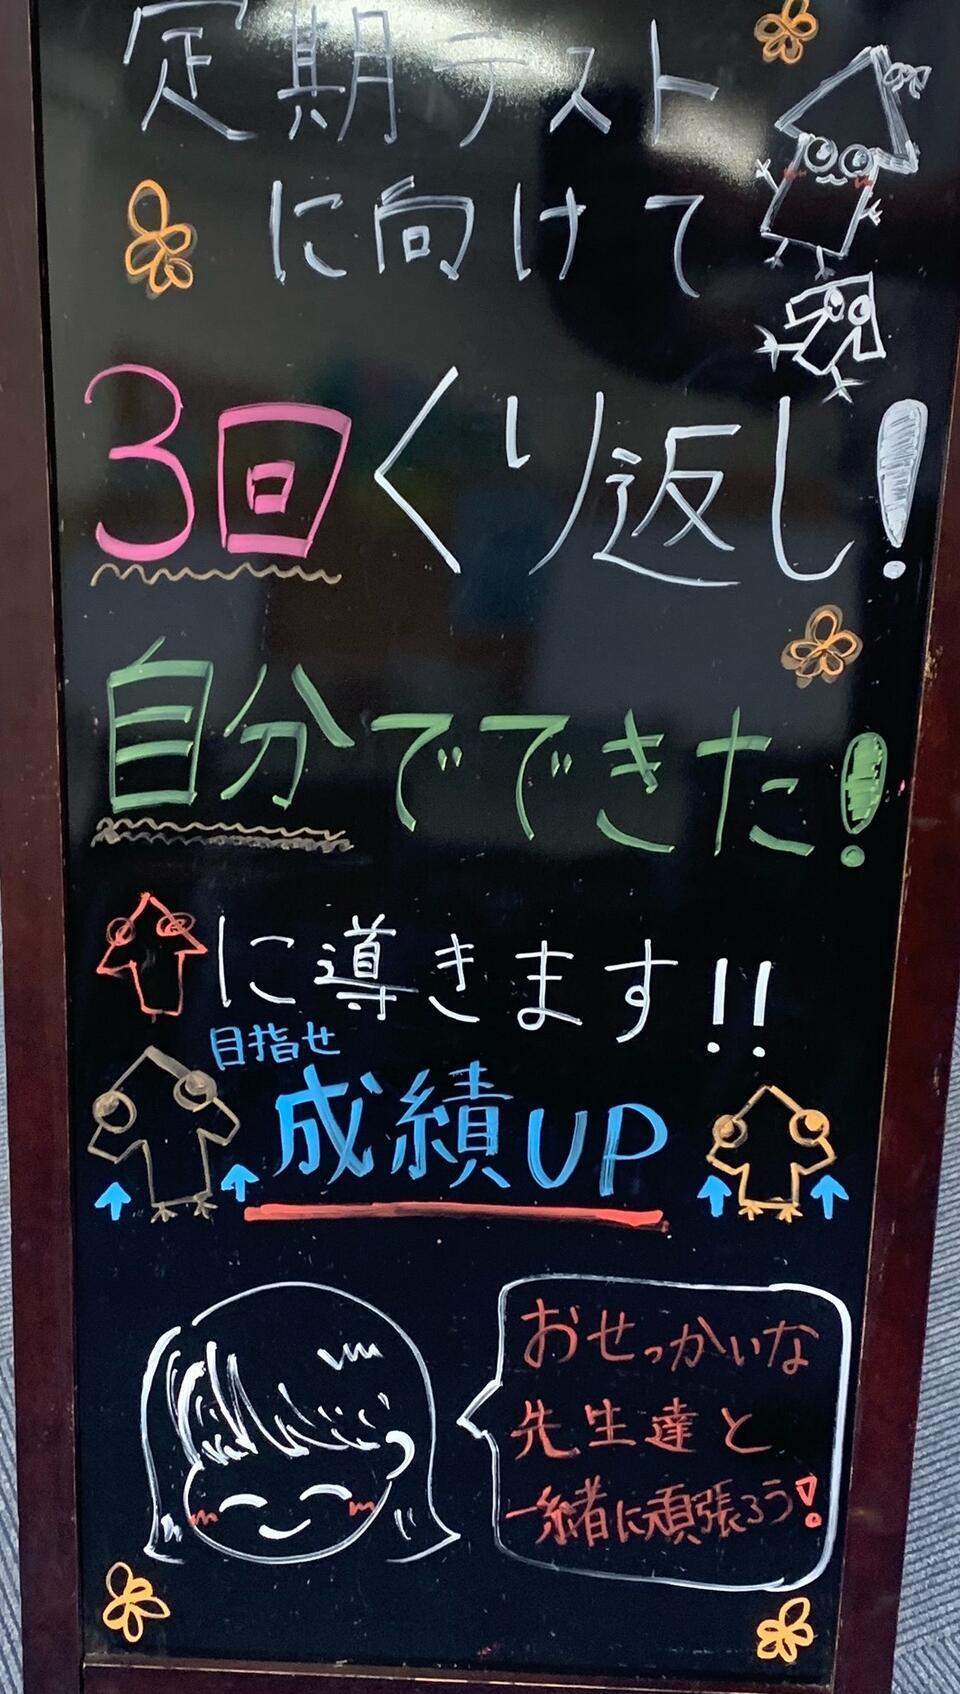 定期テスト
に向けて
3回くり返し!
自分でできた!
に導きます!!
目指せ
成績UP
おせっかいな
先生達と
一緒に頑張ろう!